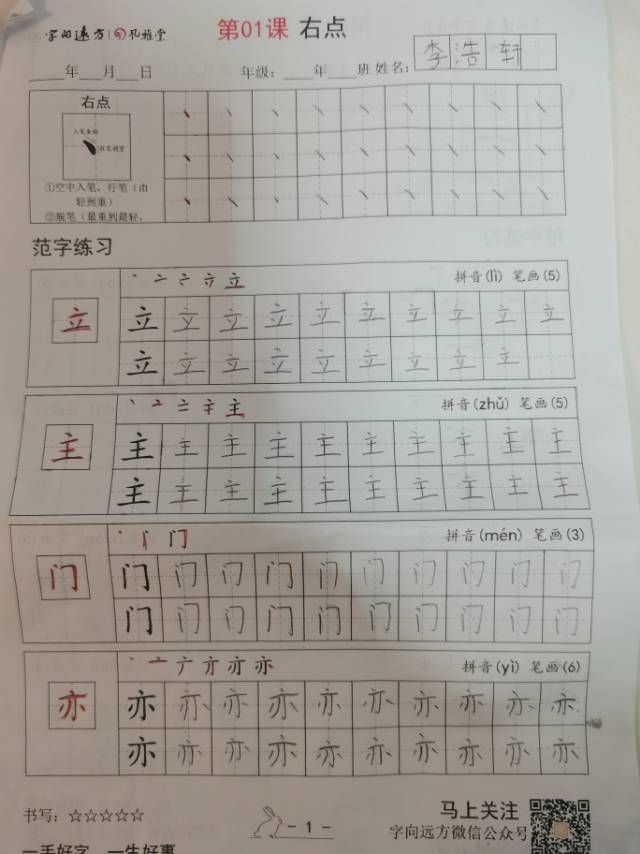 字向远方 孔雅堂 第01课 右点
年 月 日 年级： 年 班 姓名： 李浩轩
右点
①空中入笔，行笔（由
轻到重）
②脱笔（最重到最轻，
范字练习
拼音(lì) 笔画(5)
立 立 立 立 立 立 立 立 立 立 立
立 立 立 立 立 立 立 立 立
拼音(zhǔ) 笔画(5)
主 主 主 主 主 主 主 主 主 主 主
主 主 主 主 主 主 主 主 主 主
拼音(mén) 笔画(3)
门 门 门 门 门 门 门 门 门 门 门
门 门 门 门 门 门 门 门 门 门
拼音(yì) 笔画(6)
亦 亦 亦 亦 亦 亦 亦 亦 亦 亦 亦
亦 亦 亦 亦 亦 亦 亦 亦 亦 亦
书写：☆☆☆☆☆
- 1 -
马上关注
字向远方微信公众号
一手好字 一生好事